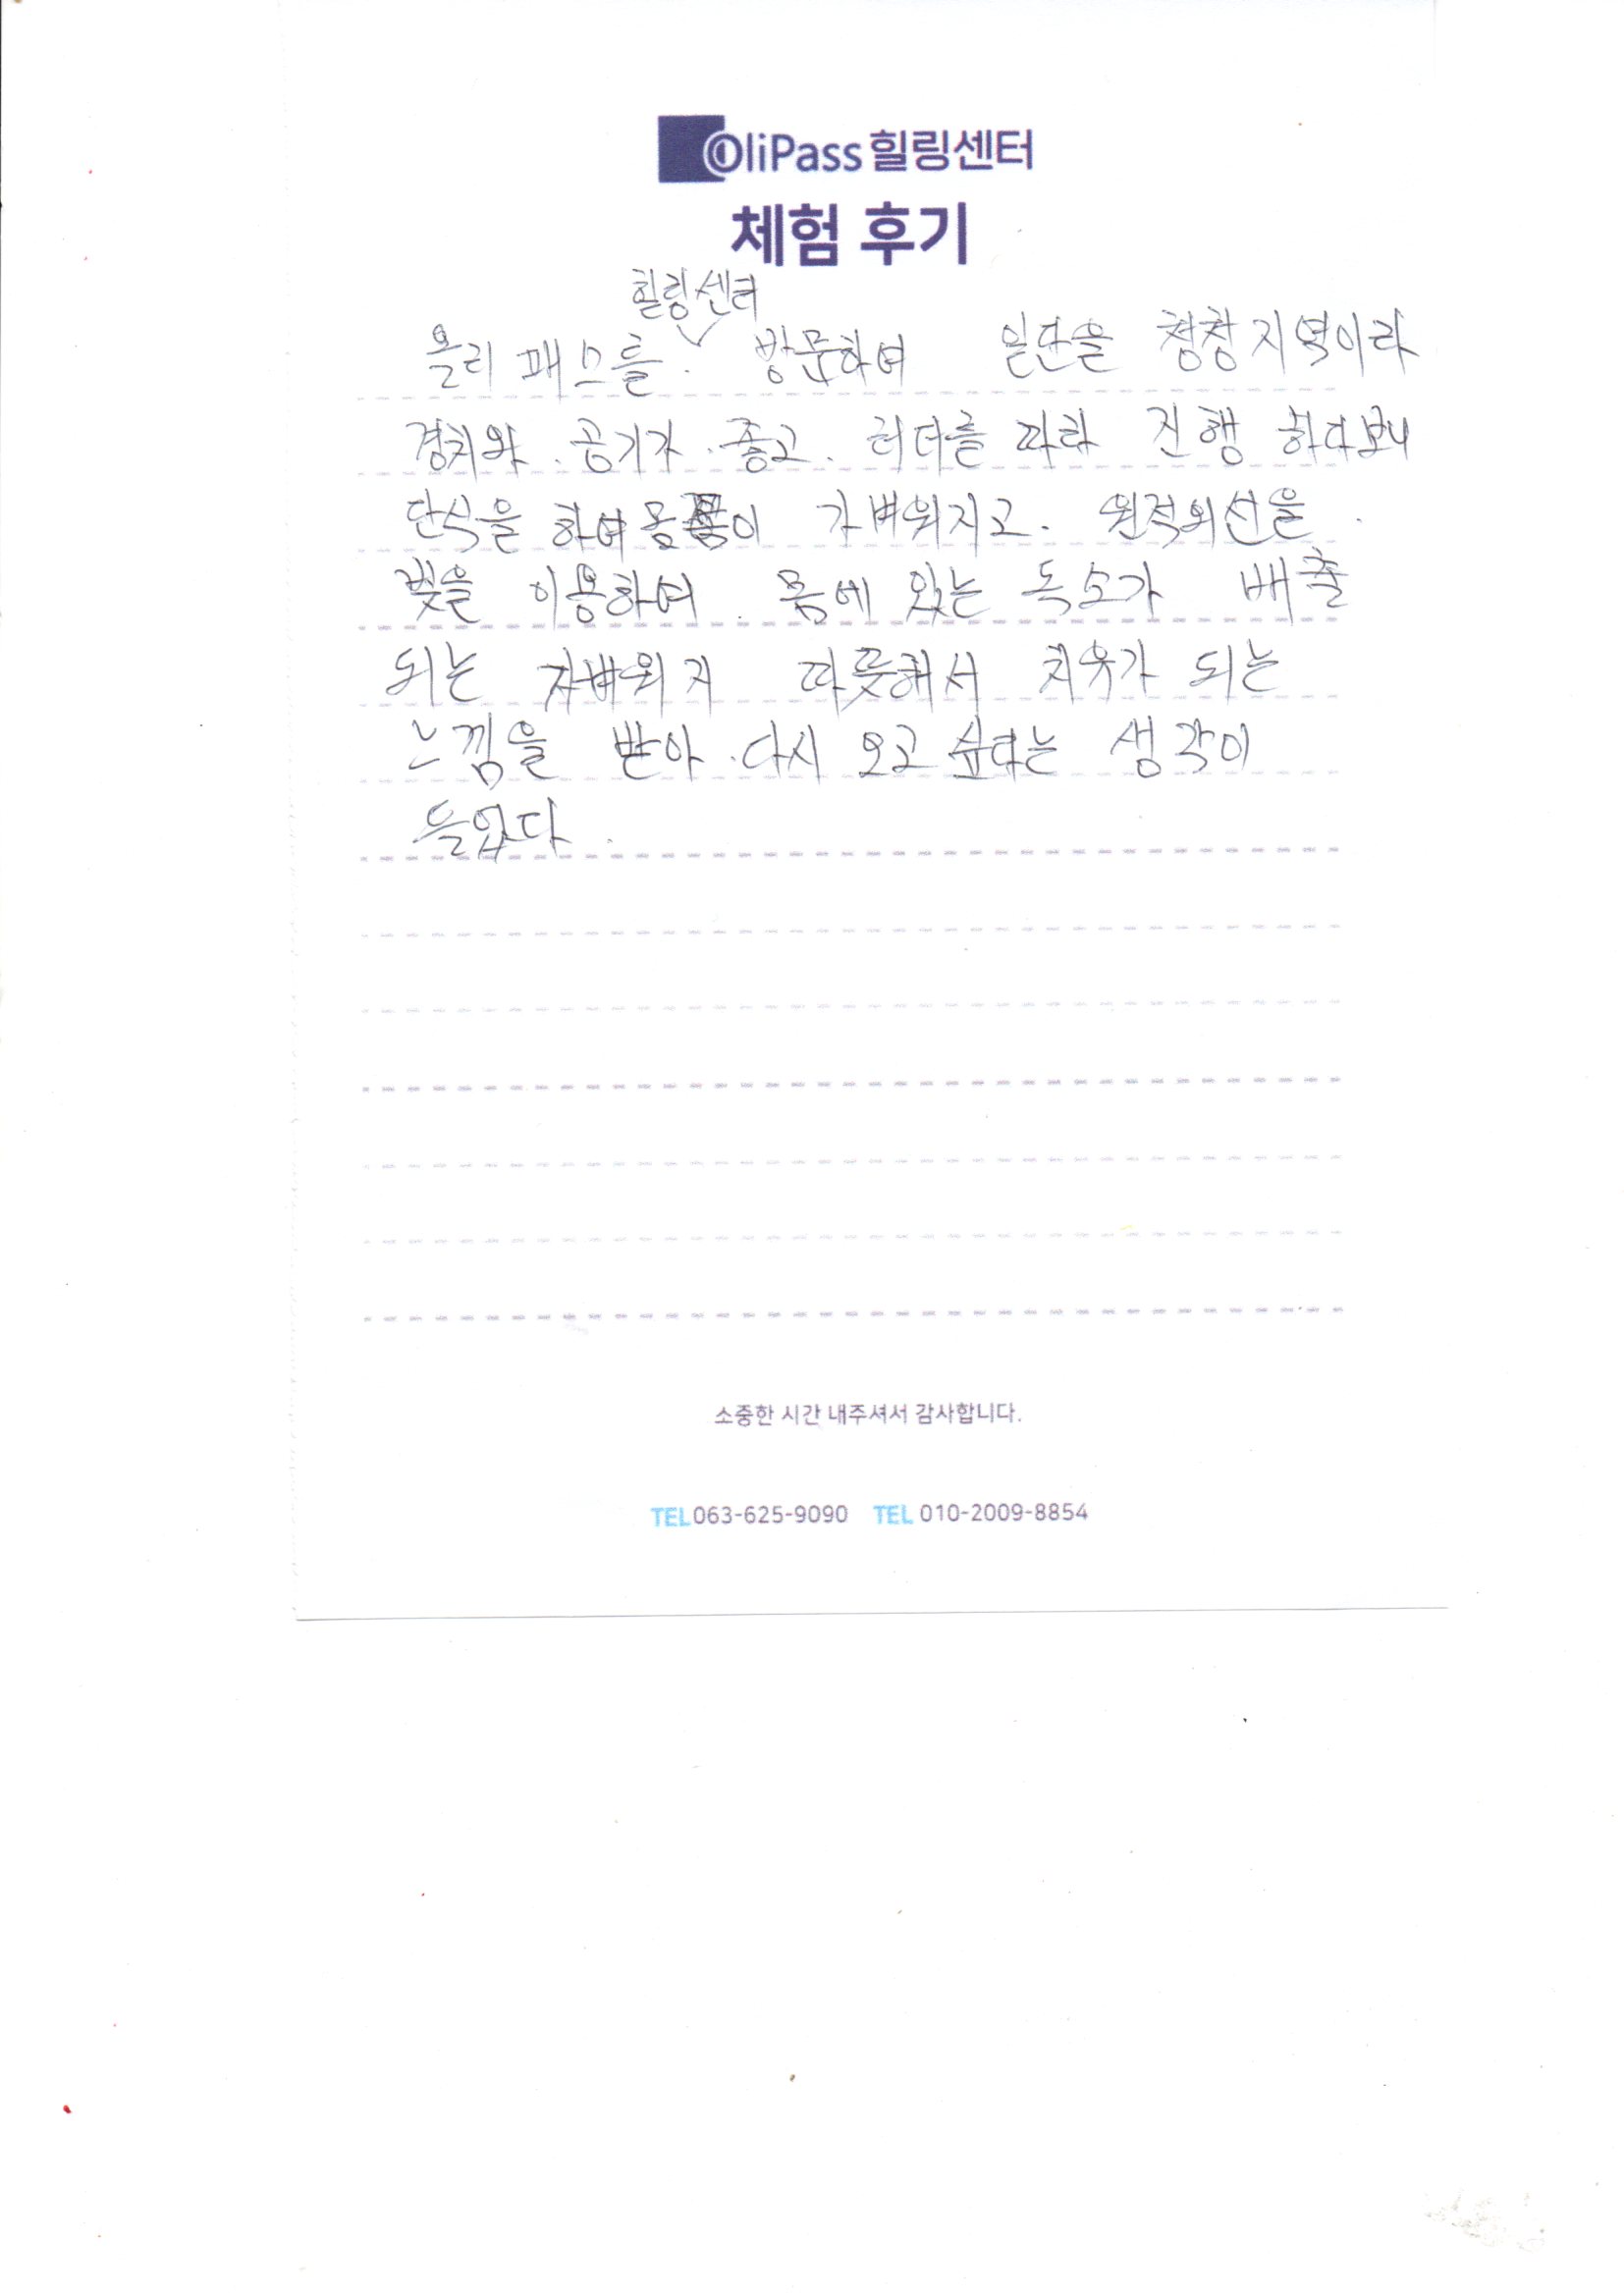 OliPass 힐링센터
체험 후기
힐링센터
올리패스를 방문하여 일단을 청창지역이라
경치와 공기가 좋고. 리더를 따라 진행 하다보니
단식을 하여 몸이 가벼워지고. 원적외선을
빛을 이용하여 몸에 있는 독소가 배출
되는 따뜻해서 치유가 되는
느낌을 받아 다시 오고 싶다는 생각이
들었다.
소중한 시간 내주셔서 감사합니다.
TEL 063-625-9090 TEL 010-2009-8854